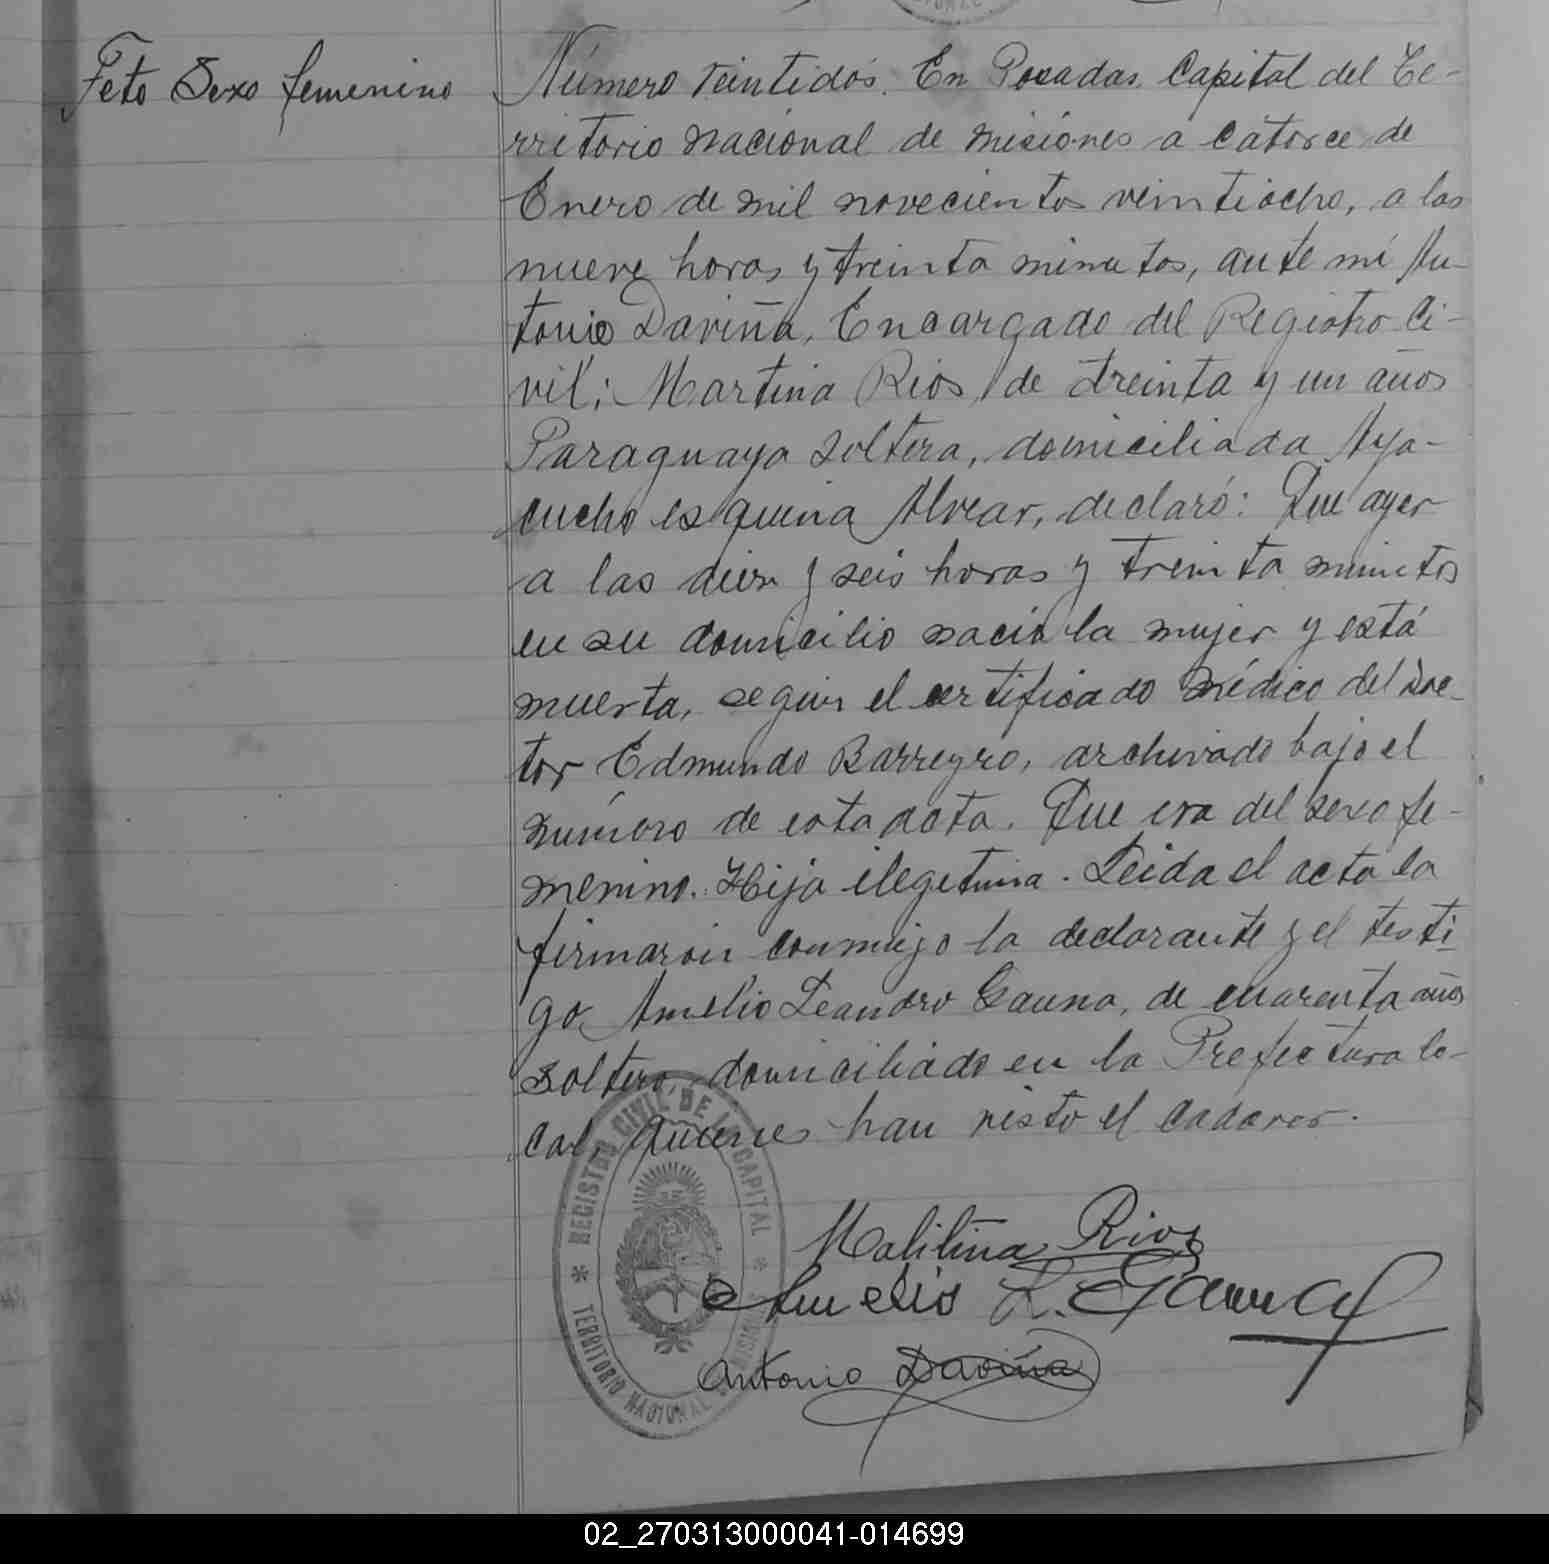 Feto Sexo femenino
Número veintidós. En Posadas, Capital del Te-
rritorio nacional de misiónes a catorce de
Enero de mil novecientos veintiocho, a las
nueve horas y treinta minutos, ante mí An-
tonio Daviña, Encargado del Registro Ci-
vil; Martina Rios, de treinta y un años
Paraguaya soltera, domiciliada Aya-
cucho esquina Alvear, declaró: Que ayer
a las diez y seis horas y treinta minutos
en su domicilio nació la mujer y está
muerta, segun el certificado médico del Doc-
tor Edmundo Barreyro, archivado bajo el
número de esta acta. Que era del sexo fe-
menino. Hija ilegetima. Leida el acta la
firmaron conmigo la declarante y el testi-
go, Amelio Leandro Gauna, de cuarenta años
soltero, domiciliado en la Prefectura lo-
cal, quienes han visto el cadaver.
REGISTRO CIVIL DE LA CAPITAL
TERRITORIO NACIONAL MISIONES
Rios
Amelio L. Gauna
Antonio Daviña
02_270313000041-014699